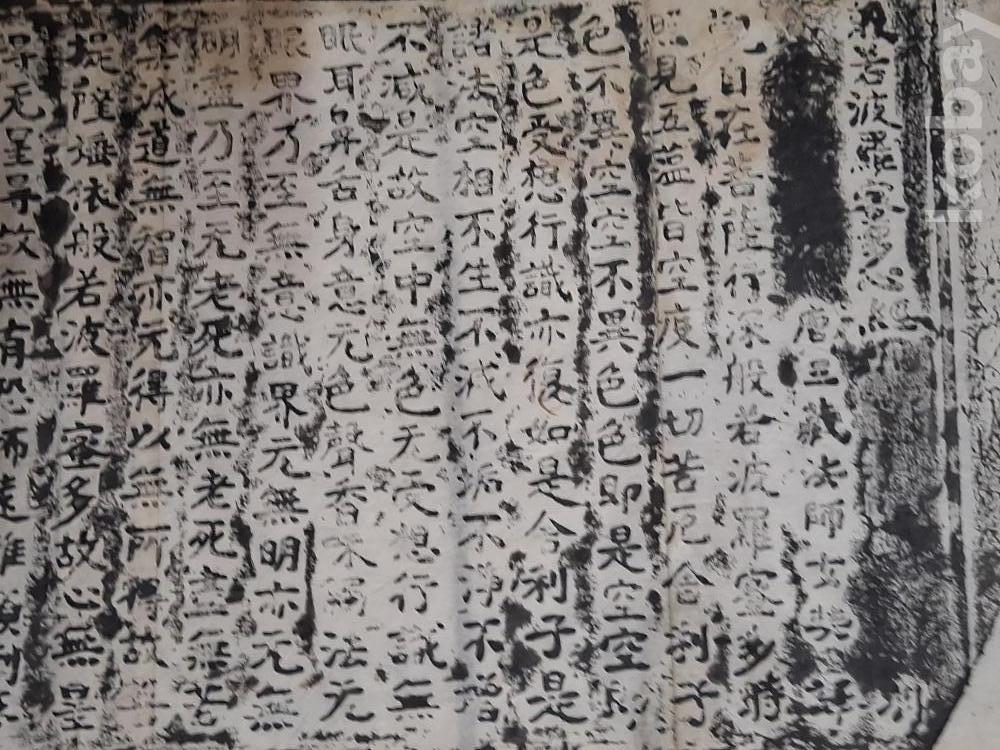 般若波羅蜜多心經
唐三藏法師玄奘譯
觀自在菩薩行深般若波羅蜜多時
照見五蘊皆空度一切苦厄舍利子
色不異空空不異色色即是空空即
是色受想行識亦復如是舍利子是
諸法空相不生不滅不垢不淨不增
不減是故空中無色无受想行識無
眼耳鼻舌身意无色聲香味觸法无
眼界乃至無意識界无無明亦无無
明盡乃至无老死亦無老死盡無苦
集滅道無智亦无得以無所得故菩
提薩埵依般若波羅蜜多故心無罣
导无罣导故無有恐怖遠離
kobay